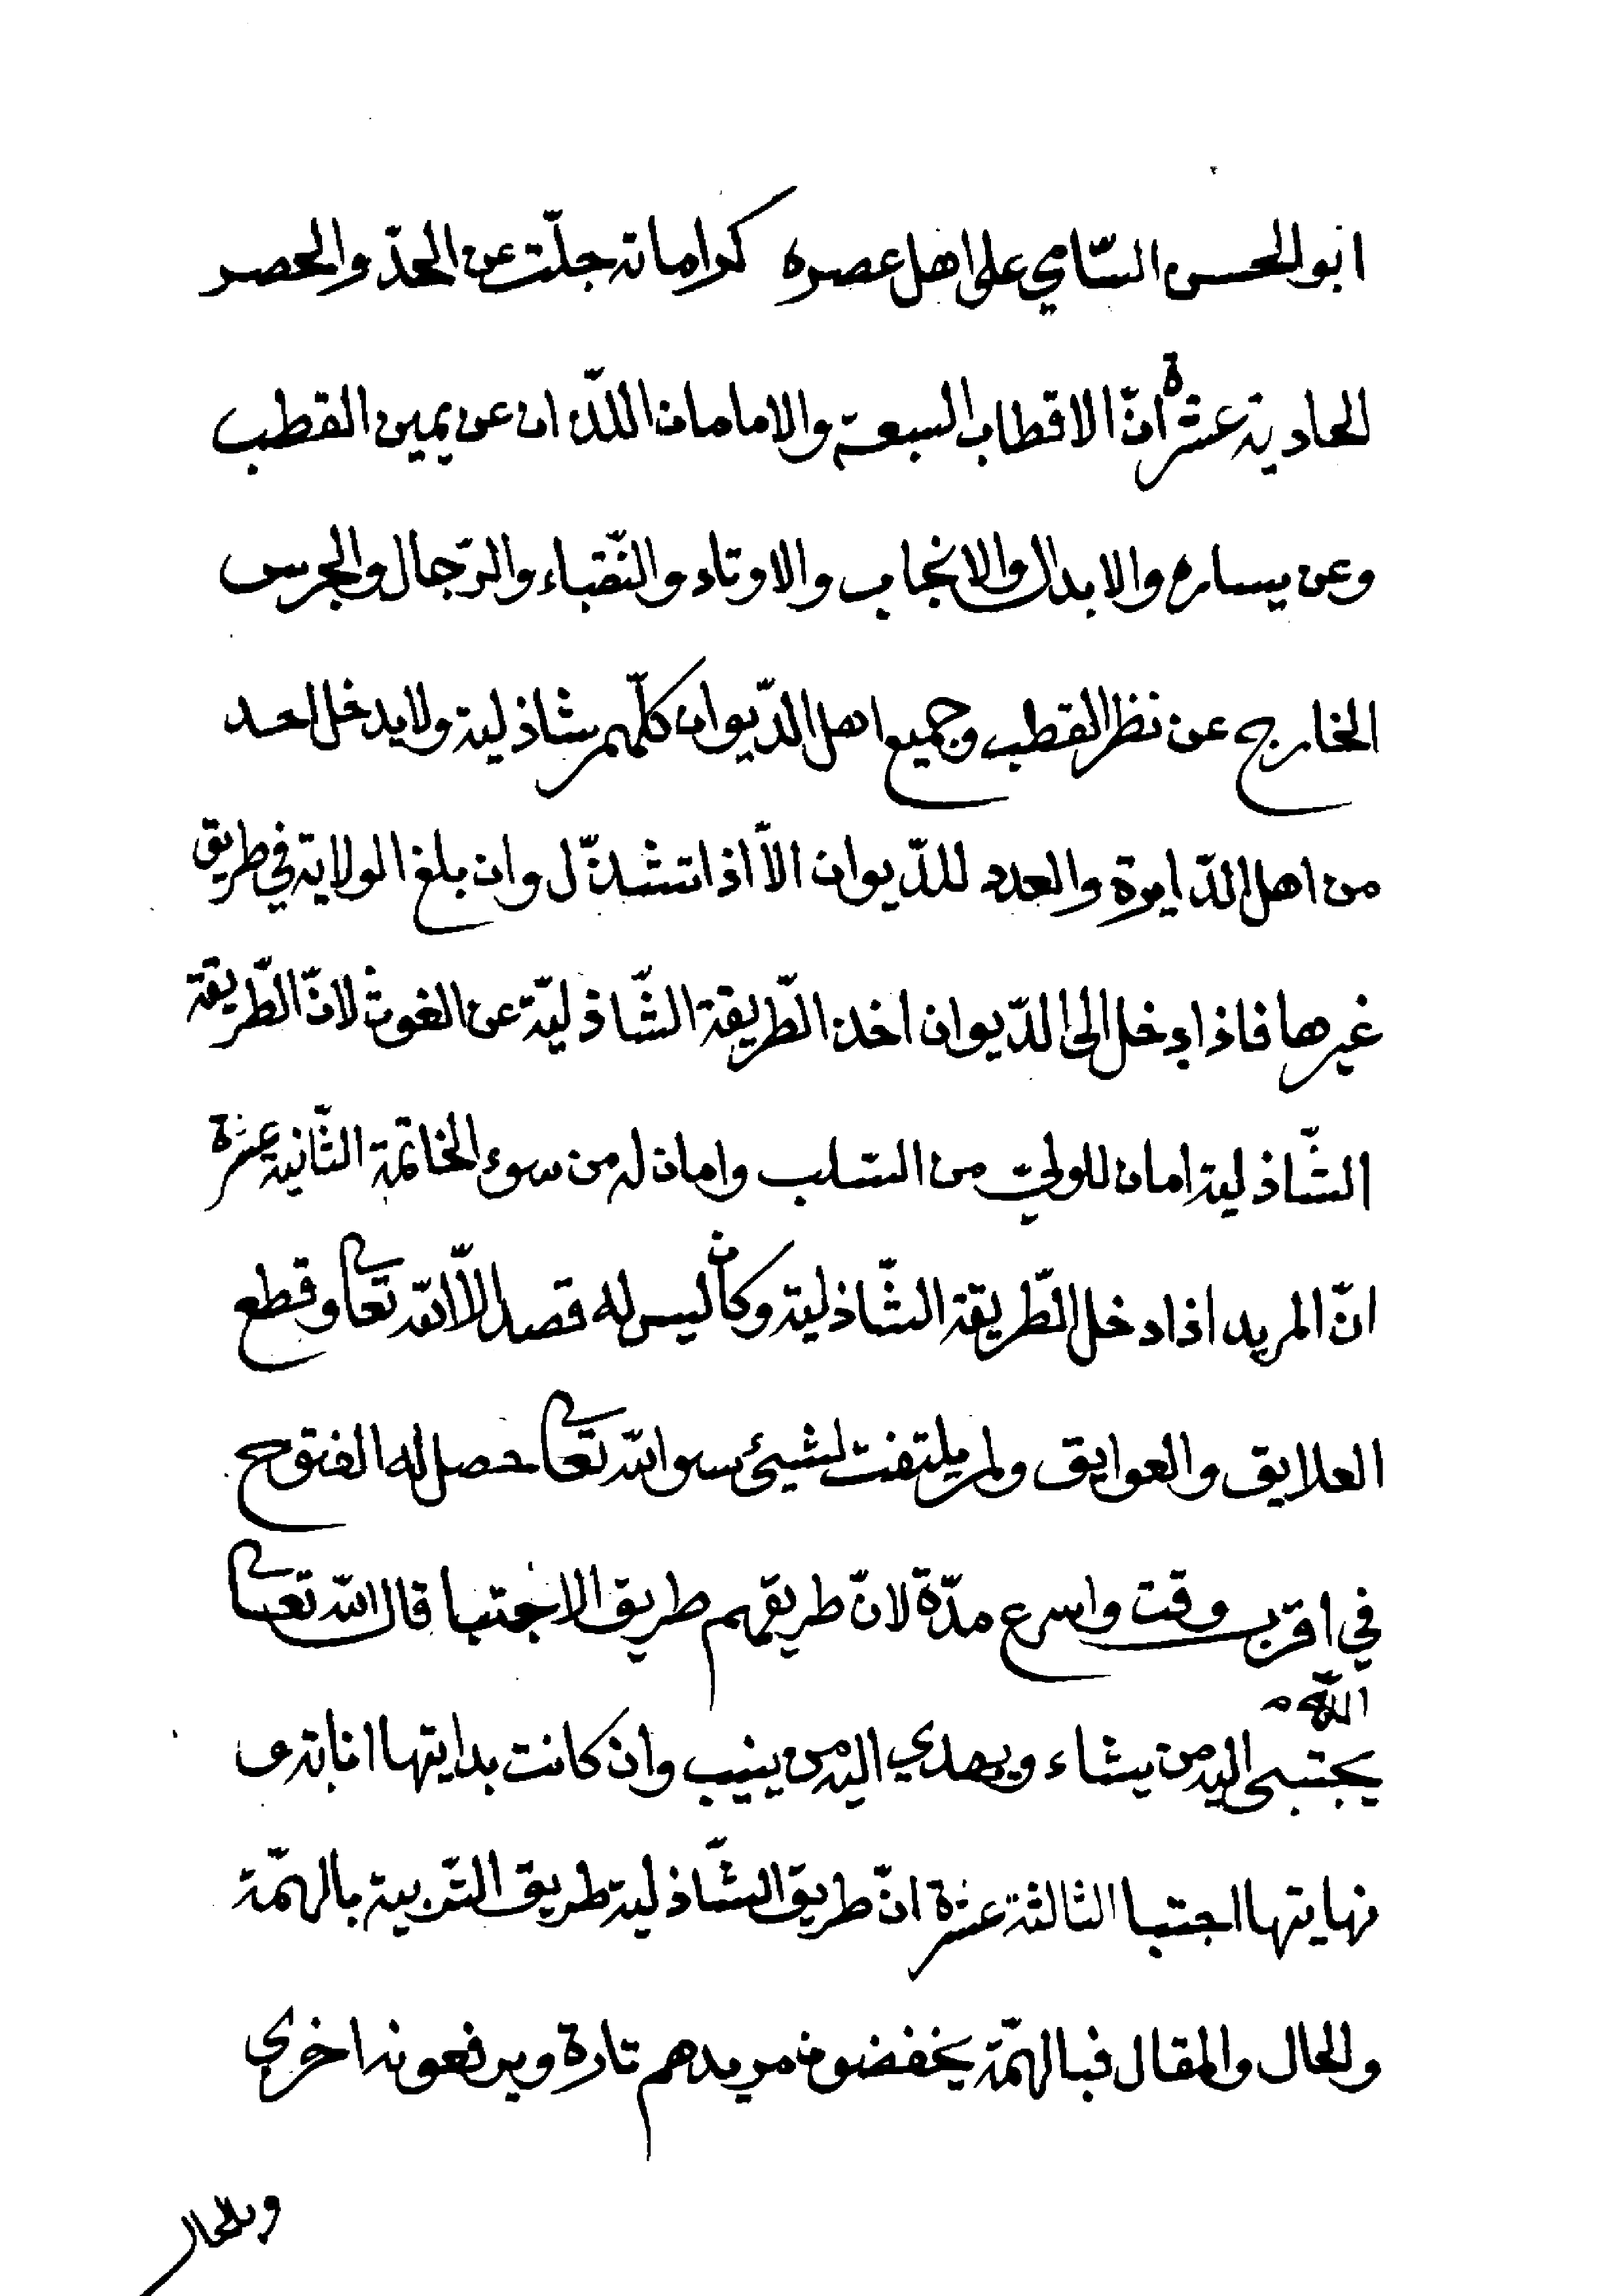 ابو الحسن السّامي على اهل عصره كراماته جلّت عن الحدّ والحصر
الحادية عشرة انّ الاقطاب السبعة والامامان اللّذان عن يمين القطب
وعن يساره والابدال والانجاب والاوتاد والنّقباء والرّجال والجرس
الخارج عن نظر القطب وجميع اهل الدّيوان كلّهم شاذلية ولا يدخل احد
من اهل الدّايرة والعدد للدّيوان الاّ اذا تشذّل وان بلغ الولاية في طريق
غيرها فاذا دخل الى الدّيوان اخذ الطّريقة الشّاذليّة عن الغوث لانّ الطّريقة
الشّاذلية امان للوليّ من السّلب وامان له من سوء الخاتمة الثّانية عشرة
انّ المريد اذا دخل الطّريقة الشّاذلية وكان ليس له قصد الاّ الله تعا وقطع
العلايق والعوايق ولم يلتفت لشيئ سوا الله تعا حصل له الفتوح
في اقرب وقت واسرع مدّة لانّ طريقهم طريق الاجتبا قال الله تعا
الله
يجتبى اليه من يشاء ويهدي اليه من ينيب وان كانت بدايتها انابة فى
نهايتها اجتبا الثالثة عشرة انّ طريق الشّاذلية طريق التّربية بالهمّة
والحال والمقال فبالهمّة يخفضون مريدهم تارة ويرفعونه اخرى
وبالحال